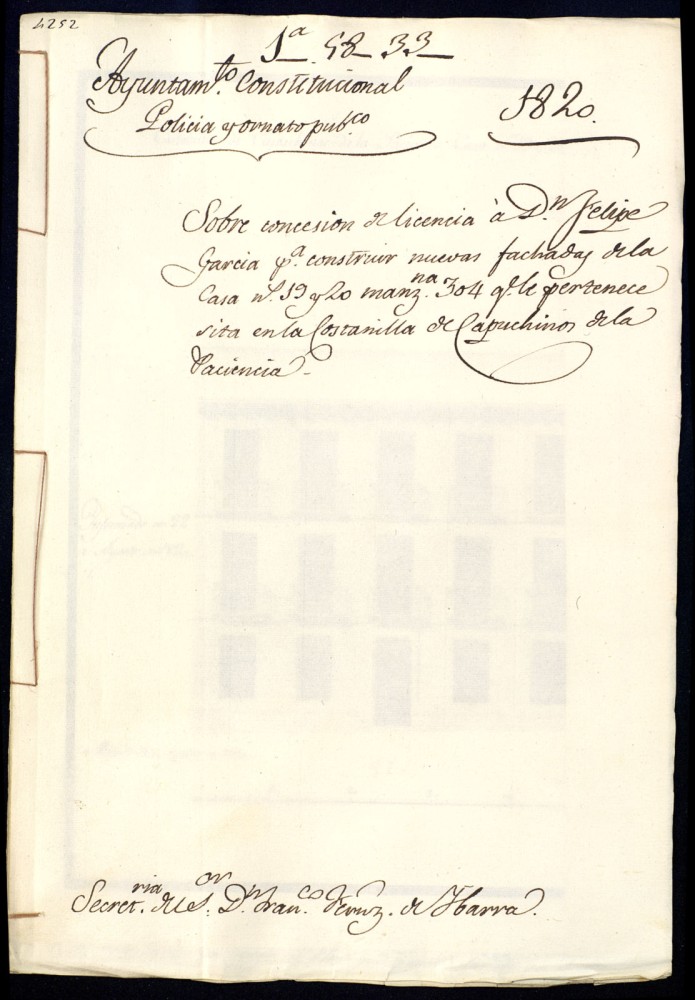 4252
1ª 58 33
Ayuntam.to Constitucional
Policia y ornato pub.co
1820.
Sobre concesion de licencia à D.n Felipe
Garcia p.a construir nuevas fachadas de la
Casa n.o 19 y 20 manz.na 304 q.e le pertenece
sita en la Costanilla de Capuchinos de la
Paciencia.
Secret.ria del S.or D.n Fran.co Fernz. de Ybarra.